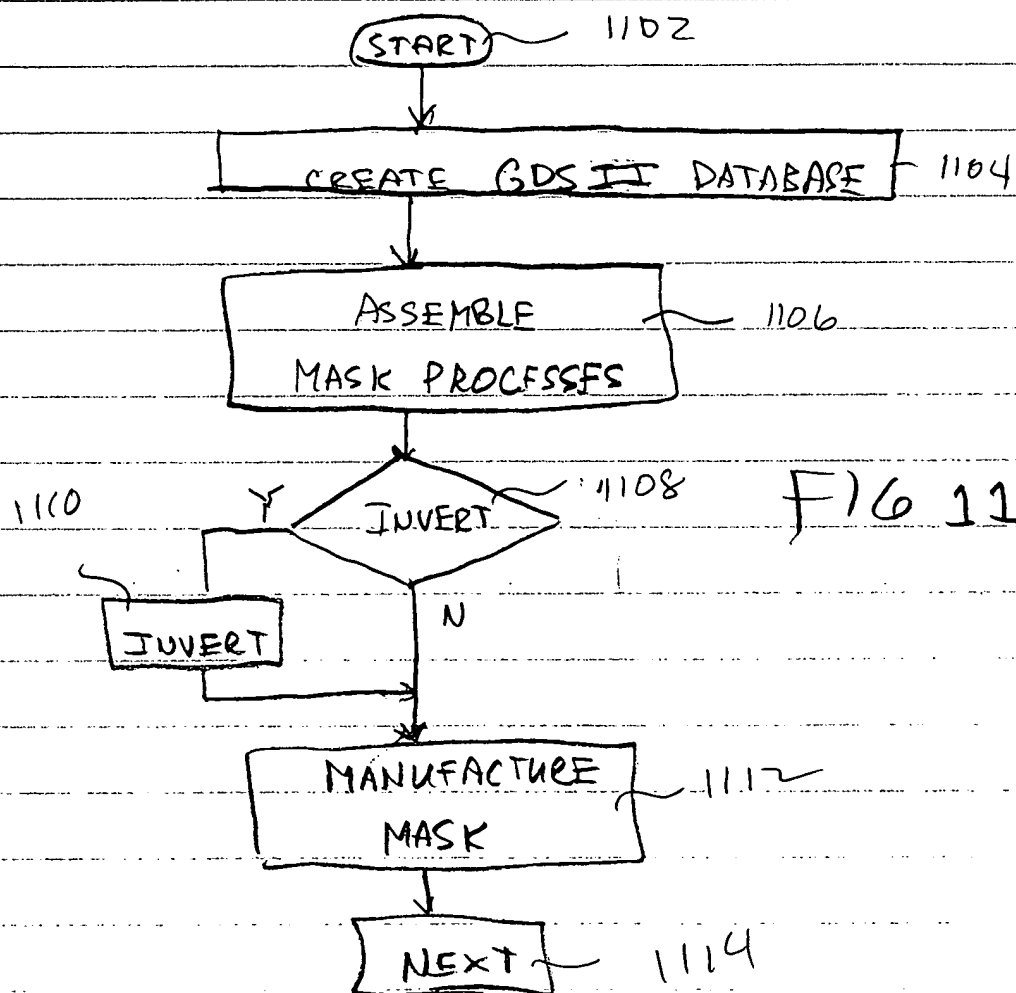 START 1102
CREATE GDS II DATABASE 1104
ASSEMBLE
MASK PROCESSES
1106
INVERT 1108
1110
Y
N
FIG 11
INVERT
MANUFACTURE
MASK
1112
NEXT 1114